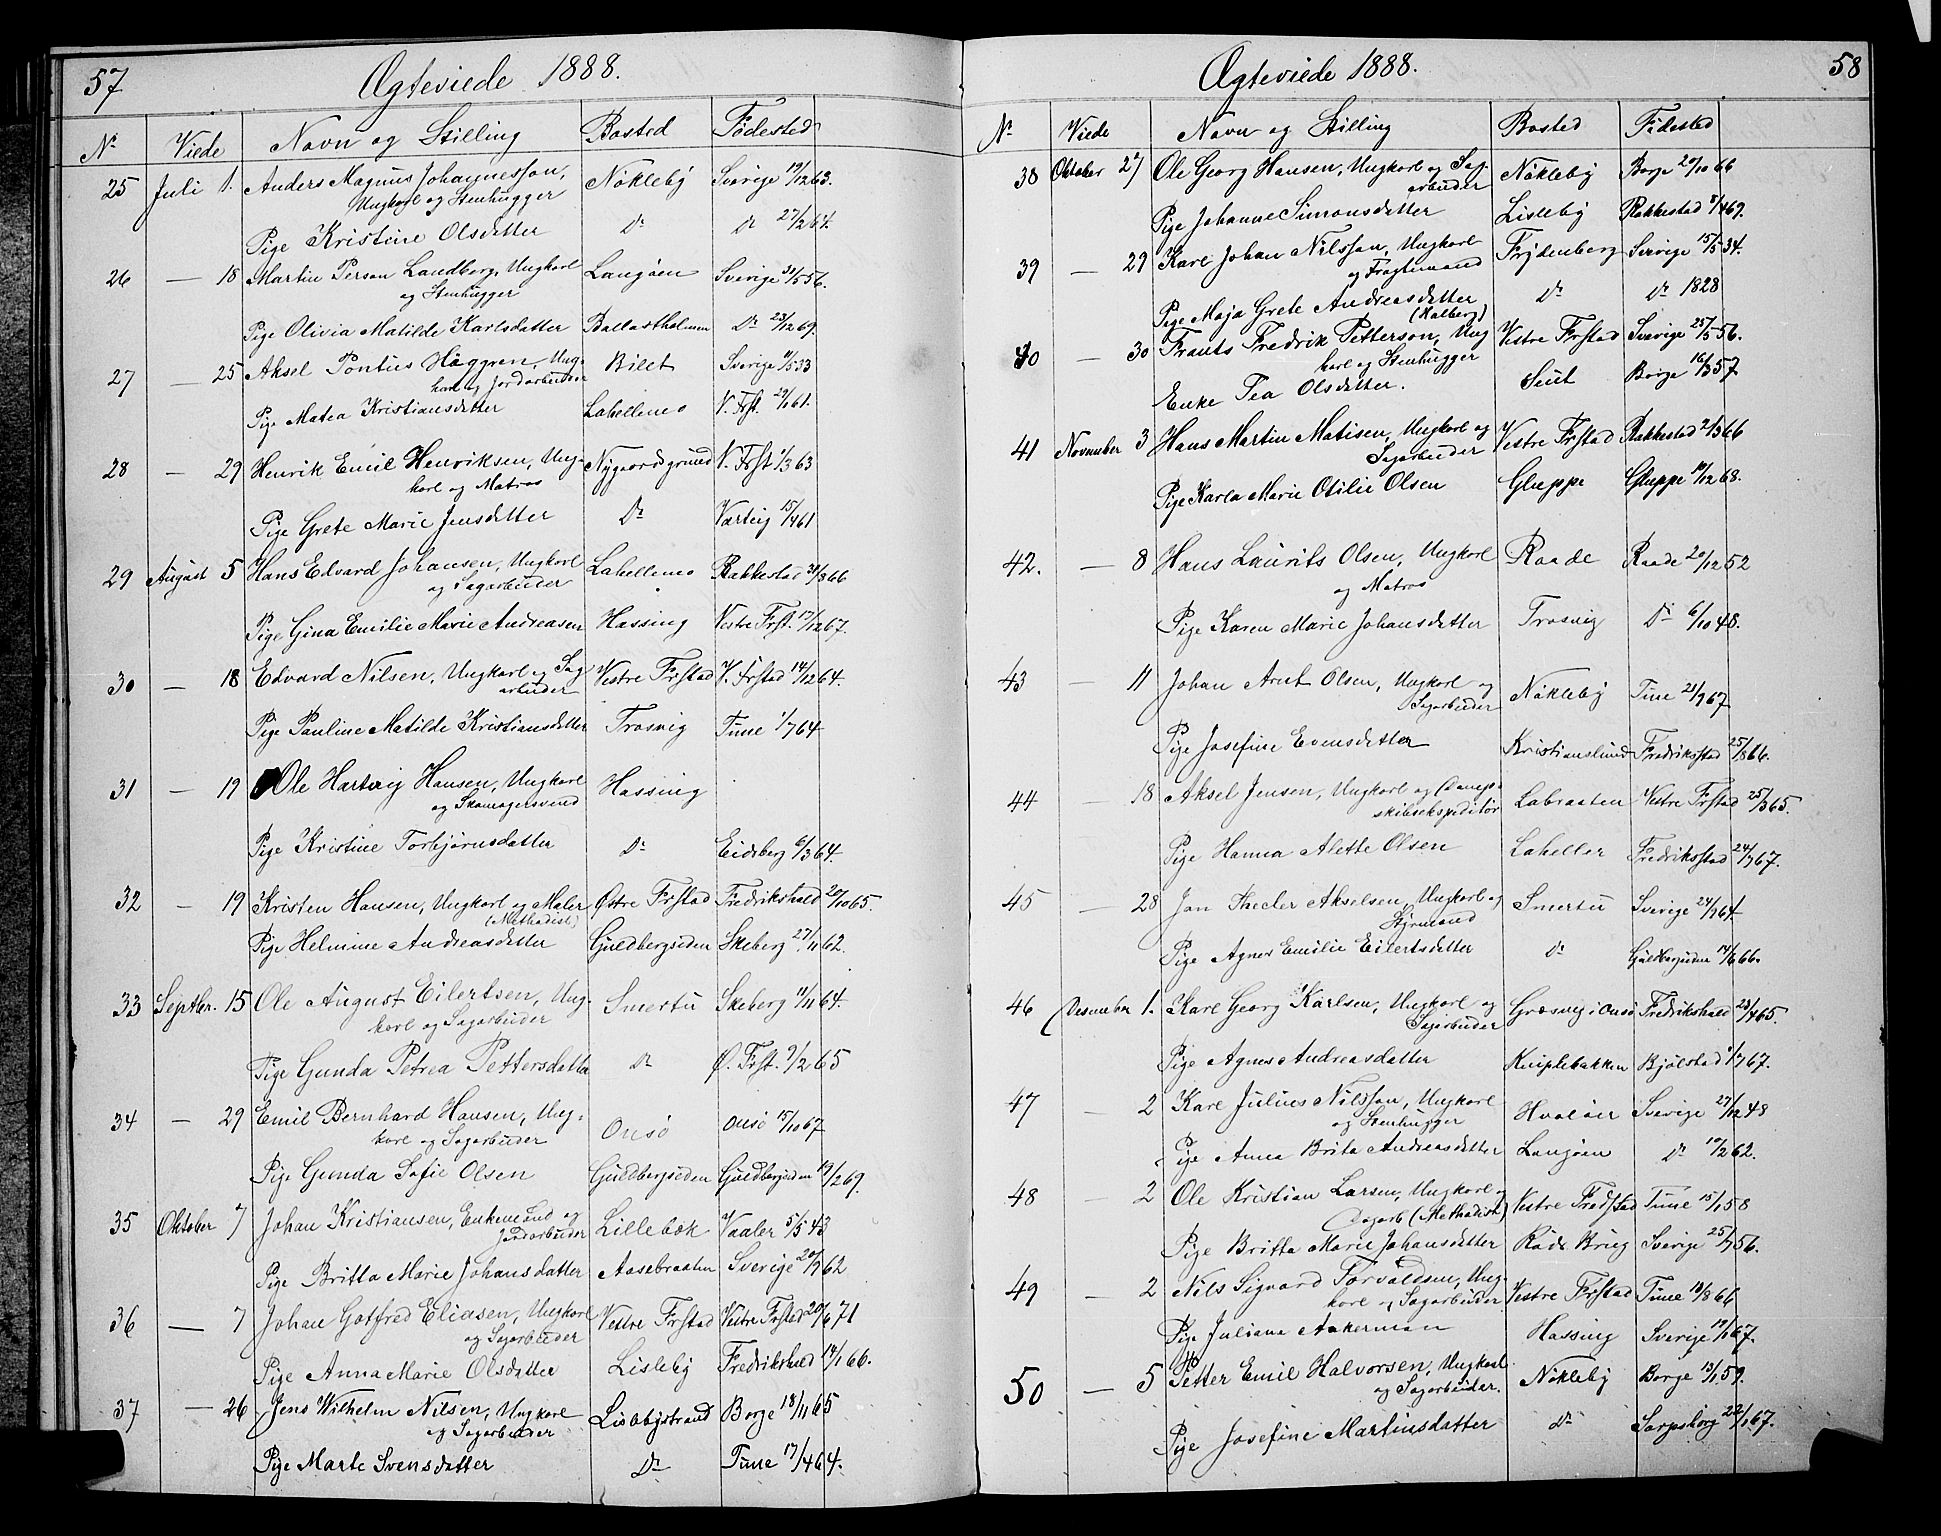 57 Ægteviede 1888.
Nr Viede Navn og Stilling Bosted Fødested
25 Juli 1. Anders Magnus Johannesson, Nökleby Sverige 19/12 63.
Ungkarl og Stenhugger
Pige Kristine Olsdatter Do Do 27/2 64.
26 — 18 Martin Person Landberg, Ungkarl Langöen Sverige 31/5 56.
og Stenhugger
Pige Olivia Matilde Karlsdatter Ballastholmen Do 23/12 69.
27 — 25 Aksel Pontus Häggren, Ung- Bilet Sverige 9/5 33
karl og Jordarbeider
Pige Matea Kristiansdatter Lahellemo V. Frst. 29/1 61.
28 — 29 Henrik Emil Henriksen, Ung- Nygaardsgrund V. Frst 1/3 63
karl og Matros
Pige Grete Marie Jensdatter Do Varteig 15/4 61
29 August 5 Hans Edvard Johansen, Ungkarl Lahellemo Rakkestad 31/3 66
og Sagarbeider
Pige Gina Emilie Marie Andreasen Hassing Vestre Frst. 17/12 67.
30 — 18 Edvard Nilsen, Ungkarl og Sag Vestre Frstad V. Frstad 14/12 64.
arbeider
Pige Pauline Matilde Kristiansdatter Trosvig Tune 1/7 64
31 — 19 Ole Hartvig Hansen, Ungkarl Hassing
og Skomagersvend
Pige Kristine Torbjörnsdatter Do Eidsberg 6/3 64.
32 — 19 Kristen Hansen, Ungkarl og Maler Østre Frstad Fredrikshald 20/10 65.
(Methodist)
Pige Helmine Andreasdatter Guldbergsiden Skeberg 27/11 62.
33 Septbr. 15 Ole August Eilertsen, Ung- Smertu Skeberg 11/11 64.
karl og Sagarbeider
Pige Gunda Petrea Pettersdatter Do Ø. Frst. 9/2 65
34 — 29 Emil Bernhard Hansen, Ung- Onsö Onsö 15/10 67
karl og Sagarbeider
Pige Gunda Sofie Olsen Guldbergsiden Guldbergsiden 19/2 69.
35 Oktober 7 Johan Kristiansen, Enkemand og Lillebæk Vaaler 5/5 43
Jordarbeider
Pige Britta Marie Johansdatter Aasebraaten Sverige 20/9 62
36 — 7 Johan Gotfred Eliasen, Ungkarl Vestre Frstad Vestre Frstad 20/6 71
og Sagarbeider
Pige Anna Marie Olsdatter Lisleby Fredrikshald 14/1 66.
37 — 26 Jens Wilhelm Nilsen, Ungkarl Lislebystrand Borge 18/11 65
og Sagarbeider
Pige Marte Svensdatter Do Tune 17/4 64.
Ægteviede 1888. 58
Nr Viede Navn og Stilling Bosted Födested
38 Oktober 27 Ole Georg Hansen, Ungkarl og Sag- Nökleby Borge 20/10 66
arbeider
Pige Johanne Simonsdatter Lisleby Rakkestad 8/4 69.
39 — 29 Karl Johan Nilsson, Ungkarl Frydenberg Sverige 15/5 34.
og Fragtemand
Pige Maja Grete Andreasdatter Do Do 1828
(Halberg)
40 — 30 Frants Fredrik Petterson, Ung Vestre Frstad Sverige 25/5 56.
karl og Stenhugger
Enke Tea Olsdatter. Seut Borge 16/3 57
41 November 3 Hans Martin Matisen, Ungkarl og Vestre Frstad Rakkestad 2/3 66
Sagarbeider
Pige Karla Marie Otilie Olsen Gluppe Gluppe 10/12 68.
42. — 8 Hans Laurits Olsen, Ungkarl Raade Raade 20/12 52
og Matros
Pige Karen Marie Johansdatter Trosvig Do 6/10 48.
43 — 11 Johan Arnt Olsen, Ungkarl og Nökleby Tune 21/9 67
Sagarbeider
Pige Josefine Evensdatter Kristianslund Fredriksstad 25/8 66.
44 — 18 Aksel Jensen, Ungkarl og Damp- Labraaten Vestre Frstad 25/3 65.
skibsekspeditör
Pige Hanna Alette Olsen Laheller Fredriksstad 24/7 67.
45 — 28 Jan Faeder Akselsen, Ungkarl og Smertu Sverige 24/1 64.
Styrmand
Pige Agnes Emilie Eilertsdatter Do Guldbergsiden 14/6 66.
46 Desember 1. Karl Georg Karlsen, Ungkarl og Græsvig i Onsö Fredrikshald 23/4 65.
Sagarbeider
Pige Agnes Andreasdatter Kniplebakken Bjölstad 9/7 67.
47 — 2 Karl Julius Nilsson, Ungkarl Hvalöer Sverige 27/12 48
og Stenhugger
Pige Anna Brita Andreasdatter Langöen Do 10/2 62.
48 — 2 Ole Kristian Larsen, Ungkarl og Vestre Fredstad Tune 15/1 58
Dagarb (Methodist)
Pige Britta Marie Johansdatter Röds Brug Sverige 25/7 56.
49 — 2 Nils Sigvard Torvaldsen, Ung- Vestre Frstad Tune 18/8 66
karl og Sagarbeider
Pige Juliana Aakerman Hassing Sverige 19/1 67.
50 — 5 Petter Emil Halvorsen, Ungkarl Nökleby Borge 13/1 59.
og Sagarbeider.
Pige Josefine Martinsdatter Do Sarpsborg 22/1 67.